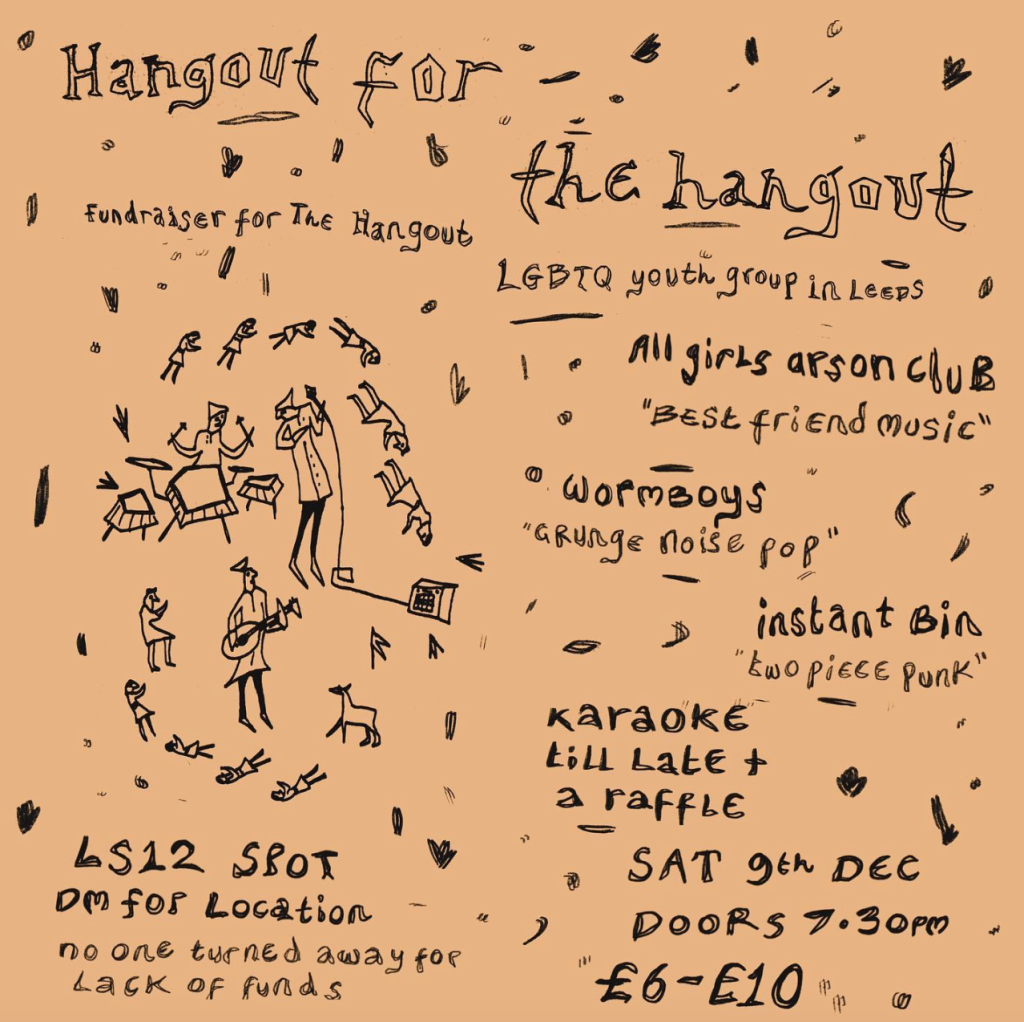 Hangout for
the hangout
Fundraiser for The Hangout
LGBTQ youth group in Leeds
All girls arson club
"Best friend music"
wormboys
"Grunge noise pop"
instant bin
"two piece punk"
karaoke
till late +
a raffle
LS12 SPOT
DM for Location
no one turned away for
lack of funds
SAT 9th DEC
DOORS 7.30pm
£6-£10